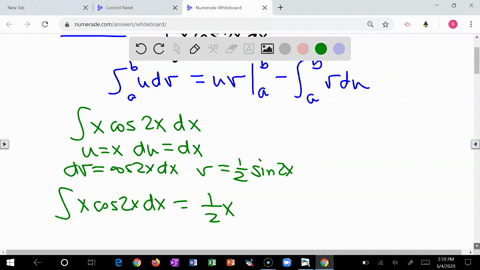 New Tab
Control Panel
Numerade Whiteboard
numerade.com/answers/whiteboard/
∫_a^b u dv = uv |_a^b − ∫_a^b v du
∫ x cos 2x dx
u = x du = dx
dv = cos2x dx v = 1/2 sin 2x
∫ x cos2x dx = 1/2 x
3:59 PM
6/4/2020